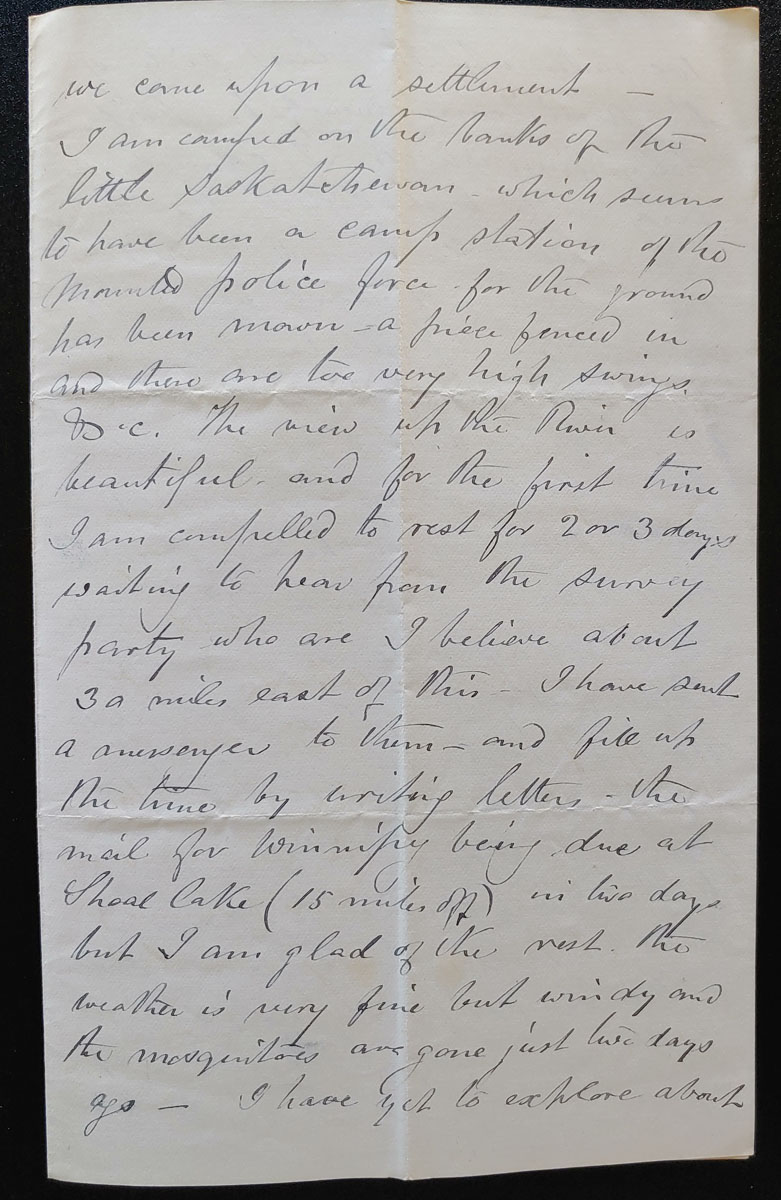 we come upon a settlement —
I am camped on the banks of the
little Saskatchewan - which seems
to have been a camp station of the
mounted police force - for the ground
has been mown - a piece fenced in
and there are two very high swings
&c. The view up the River is
beautiful - and for the first time
I am compelled to rest for 2 or 3 days
waiting to hear from the survey
party who are I believe about
30 miles east of this - I have sent
a messenger to them - and fill up
the time by writing letters - the
mail for Winnipeg being due at
Shoal Lake (15 miles off) in two days
but I am glad of the rest. The
weather is very fine but windy and
the mosquitoes are gone just two days
ago — I have yet to explore about